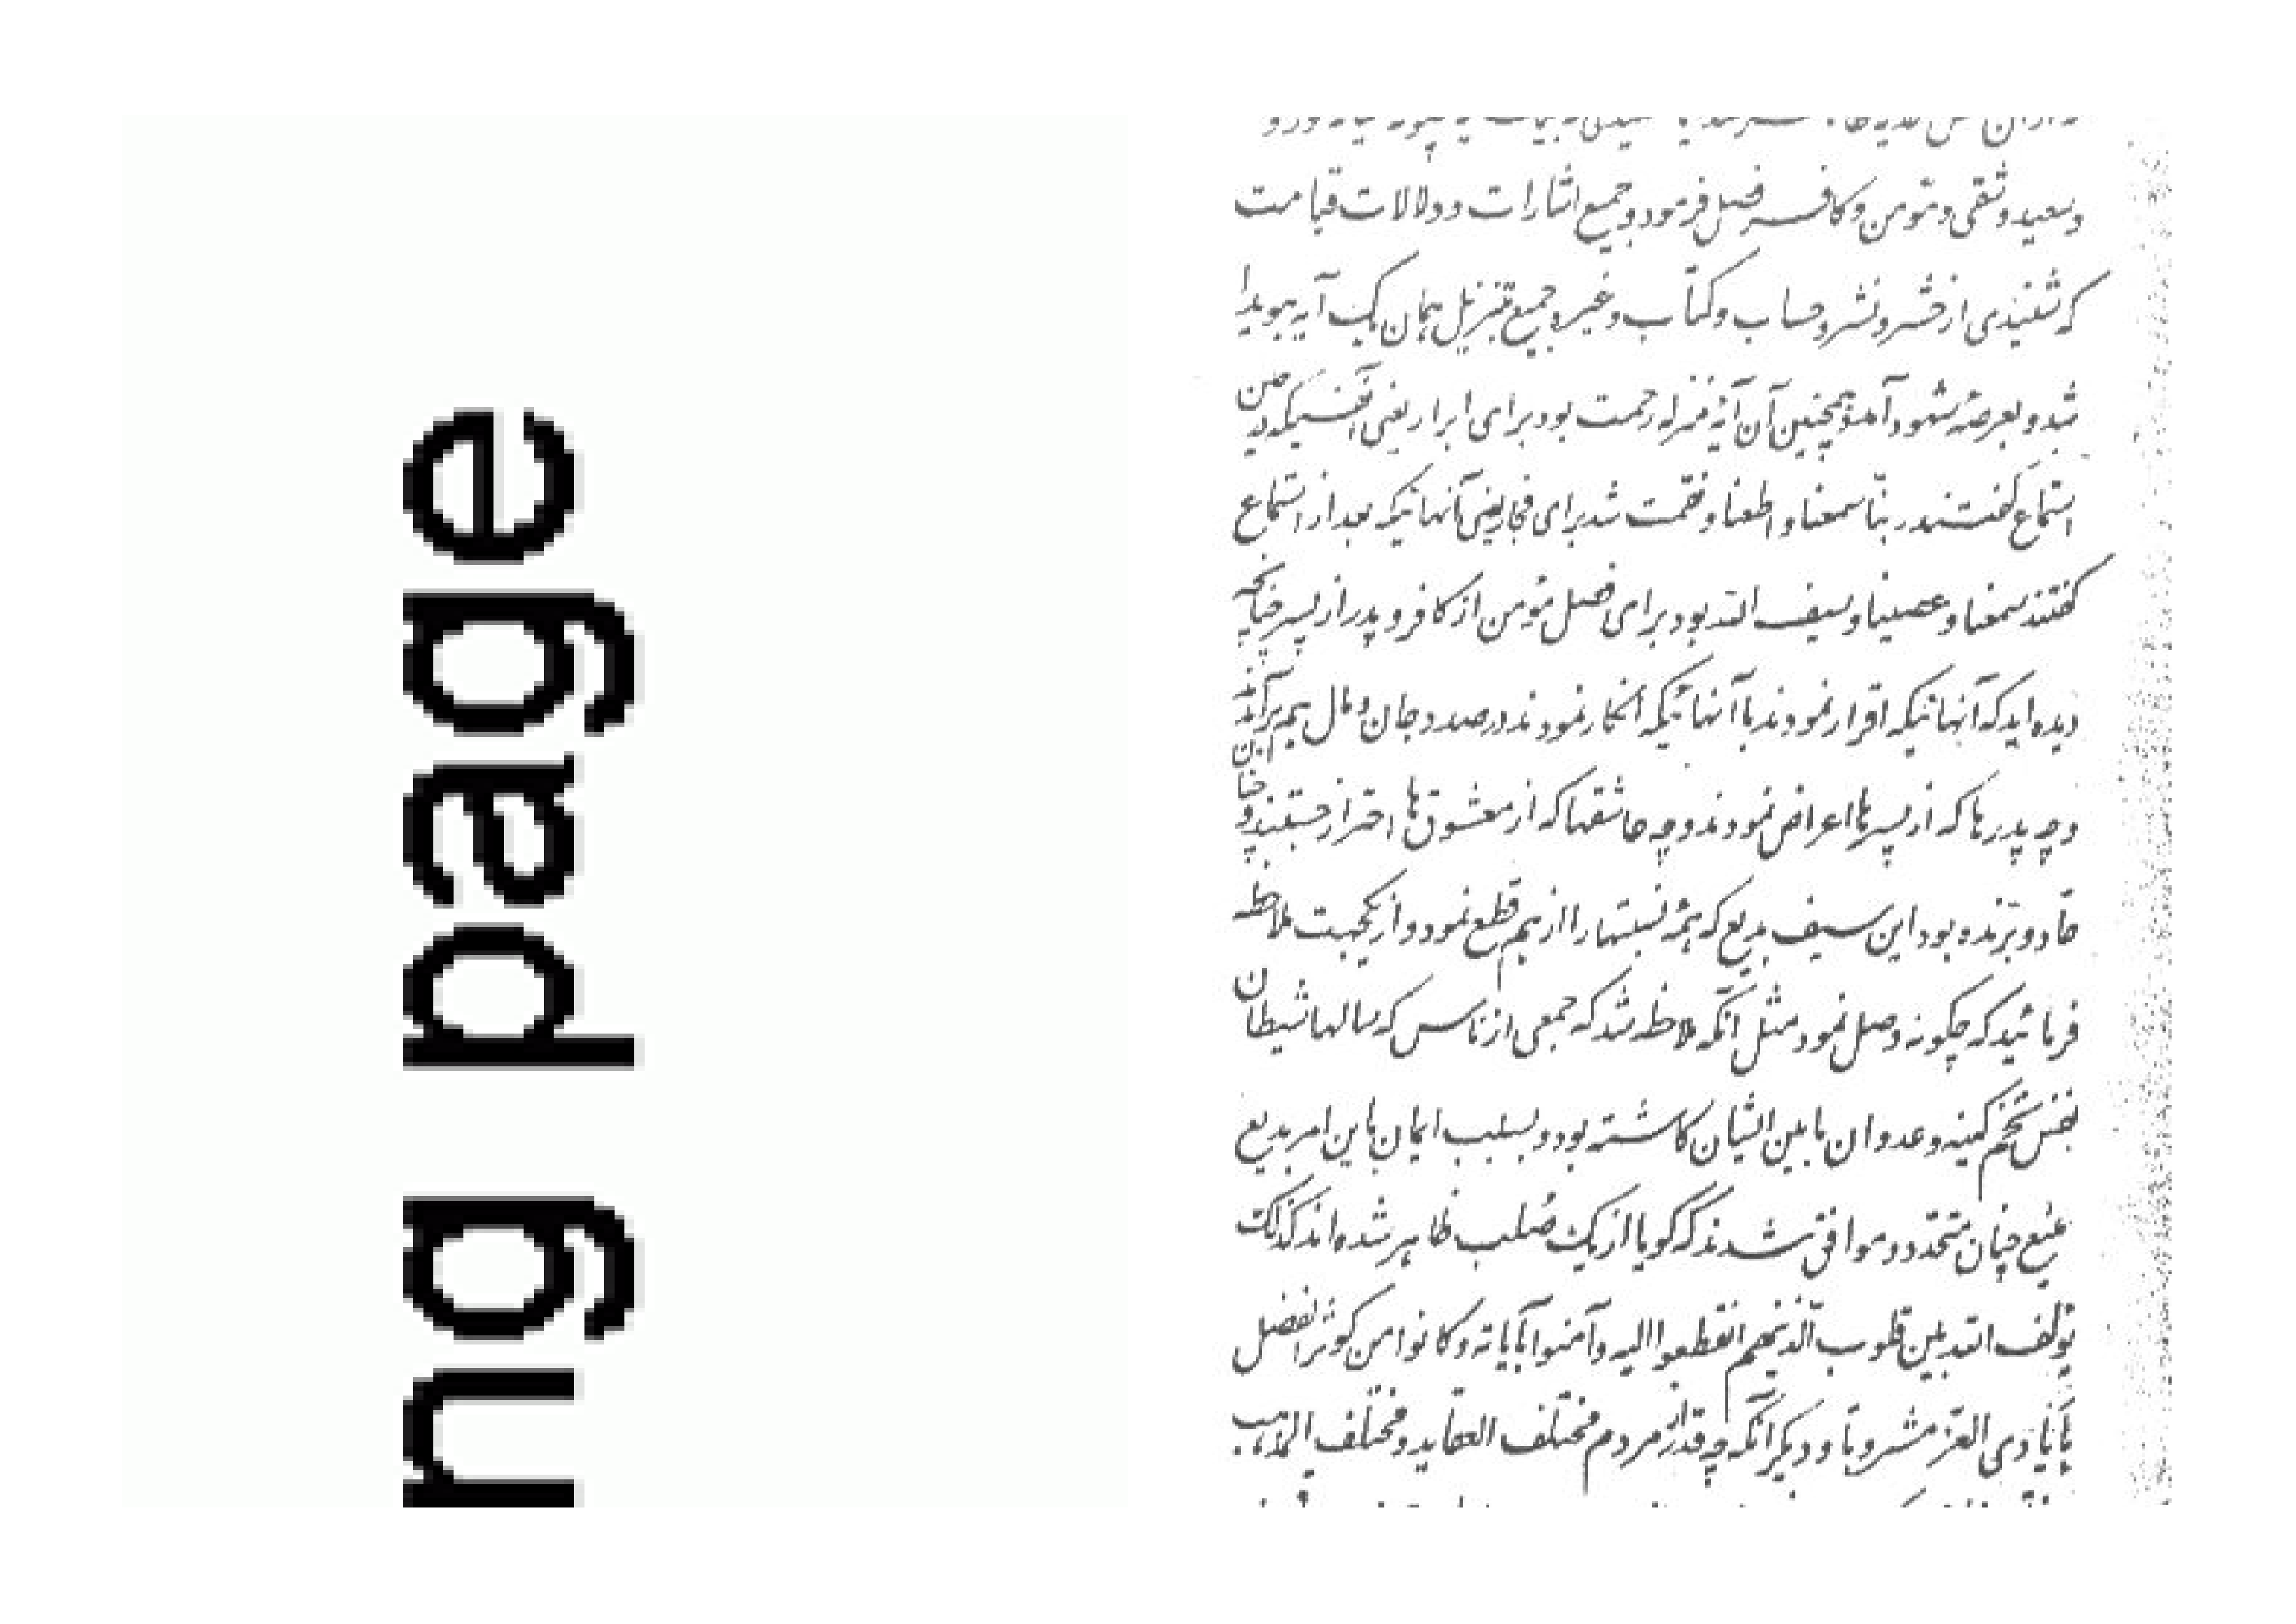 ng page
وسعید و شقی و مؤمن و کافر فصل فرمود و جمیع اشارات و دلالات قیامت
که شنیدی از حشر و نشر و حساب و کتاب و غیره جمیع بتنزیل همان یک آیه هویدا
شد و بعرصه شهود آمد و همچنین آن آیه منزله رحمت بود برای ابرار یعنی انفسیکه در حین
استماع گفتند ربنا سمعنا و اطعنا و نقمت شد برای فجار یعنی آنهائیکه بعد از استماع
گفتند سمعنا و عصینا و سیف الله بود برای فصل مؤمن از کافر و پدر از پسر چنانچه
دیده اید که آنهائیکه اقرار نمودند با آنهائیکه انکار نمودند در صدد جان و مال هم برآمدند
و چه پدرها که از پسرها اعراض نمودند و چه عاشقها که از معشوقها احتراز جستند و چنان
حاد و برنده بود این سیف بدیع که همه نسبتها را از هم قطع نمود و از یکجهت ملاحظه
فرمائید که چگونه وصل نمود مثل آنکه ملاحظه شد که جمعی از ناس که سالها شیطان
نفس تخم کینه و عدوان مابین ایشان کاشته بود و بسبب ایمان باین امر بدیع
منیع چنان متحد و موافق شدند که گویا از یک صلب ظاهر شده اند کذلک
یؤلف الله بین قلوب الذینهم انقطعوا الیه و آمنوا بآیاته و کانوا من کوثر الفضل
بأیادی العز مشروبا و دیگر آنکه چه قدر از مردم مختلف العقاید و مختلف المذاهب